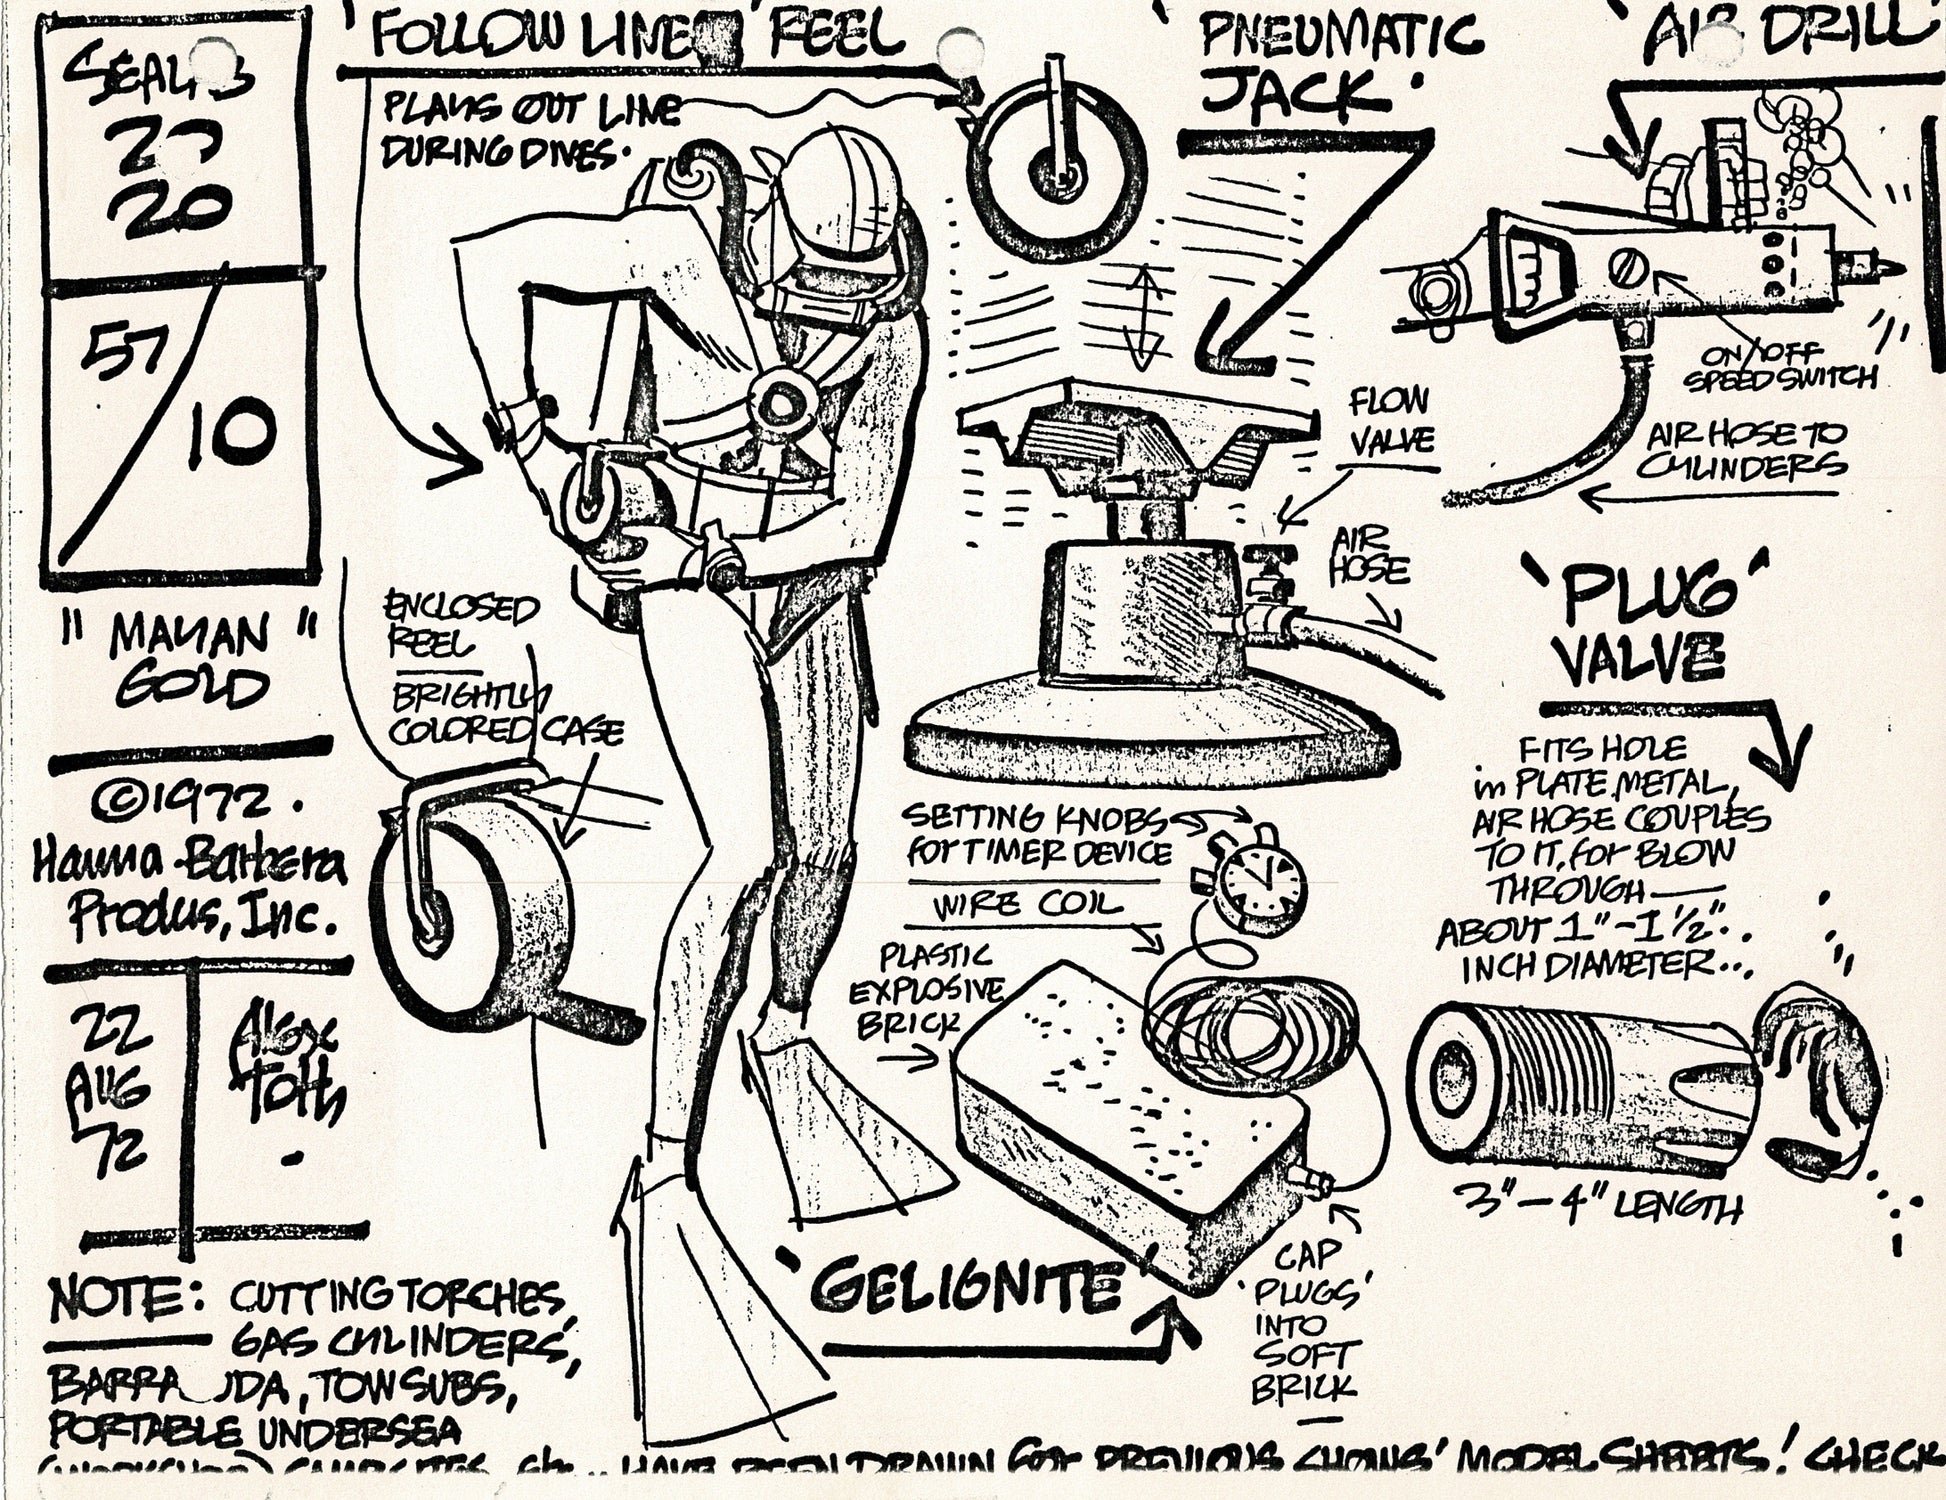 57/10
" MAYAN "
GOLD
©1972.
Hanna-Barbera
Produs, Inc.
22
AUG
72
Alex
Toth
'FOLLOW LINE' REEL
PLAYS OUT LINE
DURING DIVES.
ENCLOSED
REEL
BRIGHTLY
COLORED CASE
'PNEUMATIC
JACK.'
FLOW
VALVE
AIR
HOSE
'AIR DRILL'
ON/OFF
SPEED SWITCH
AIR HOSE TO
CYLINDERS
'PLUG'
VALVE
FITS HOLE
in PLATE METAL,
AIR HOSE COUPLES
TO IT, for BLOW
THROUGH—
ABOUT 1"-1 1/2"..
INCH DIAMETER...
3"-4" LENGTH
SETTING KNOBS
for TIMER DEVICE
WIRE COIL
PLASTIC
EXPLOSIVE
BRICK
'GELIGNITE'
CAP
'PLUGS'
INTO
SOFT
BRICK
NOTE: CUTTING TORCHES,
GAS CYLINDERS,
TOW SUBS,
PORTABLE UNDERSEA
HAVE BEEN DRAWN for PREVIOUS SHOWS' MODEL SHEETS! CHECK